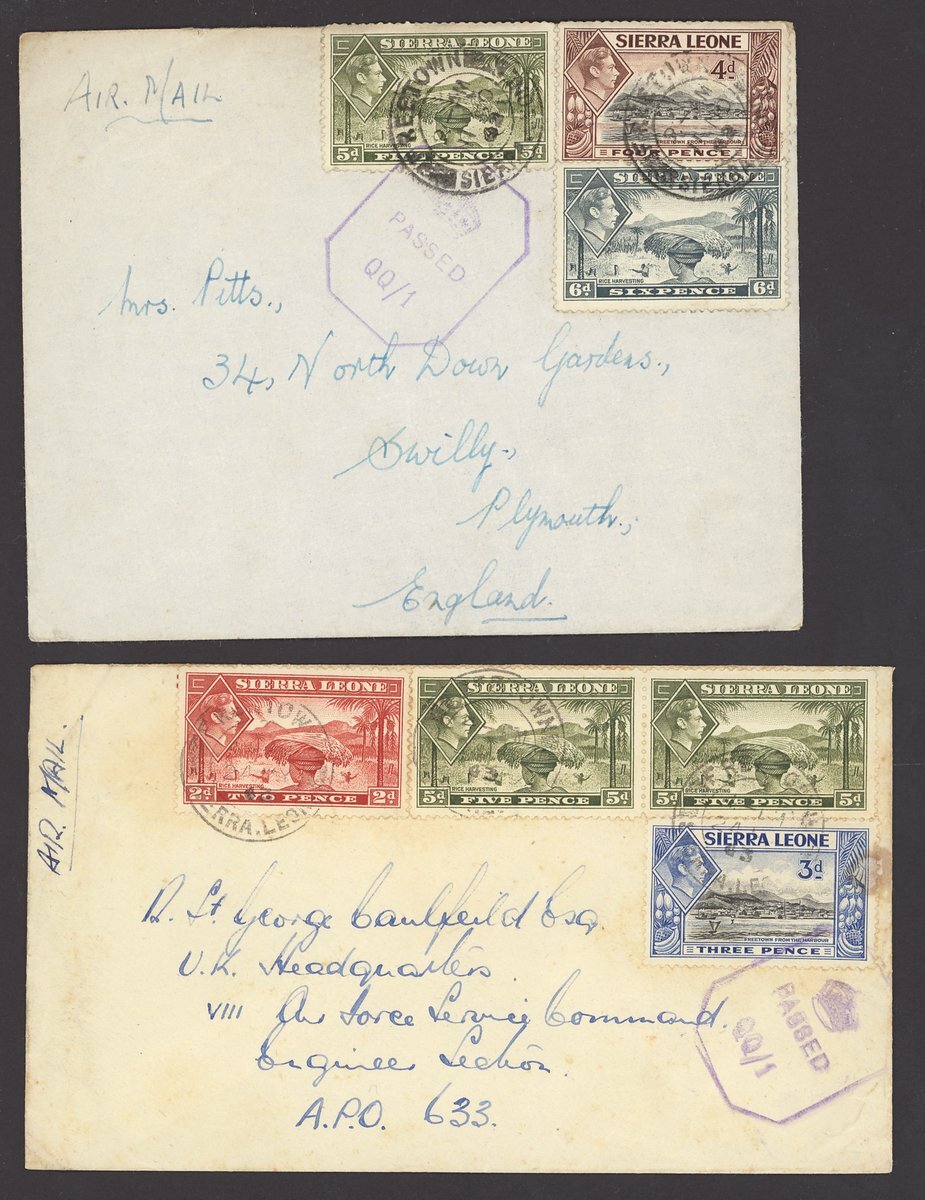 AIR. MAIL
SIERRA LEONE
RICE HARVESTING
5d FIVE PENCE 5d
SIERRA LEONE
4d
FREETOWN FROM THE HARBOUR
FOUR PENCE
FREETOWN
SIERRA
SIERRA LEONE
RICE HARVESTING
6d SIXPENCE 6d
PASSED
QQ/1
Mrs. Pitts.,
34, North Down Gardens.,
Swilly.,
Plymouth.,
England.
AIR MAIL.
SIERRA LEONE
RICE HARVESTING
2d TWO PENCE 2d
SIERRA LEONE
RICE HARVESTING
5d FIVE PENCE 5d
SIERRA LEONE
RICE HARVESTING
5d FIVE PENCE 5d
FREETOWN
SIERRA.LEONE
SIERRA LEONE
3d
FREETOWN FROM THE HARBOUR
THREE PENCE
R. St. George Caulfeild Esq.
U.K. Headquarters
VIII Air Force Service Command.
Engineer Section.
A.P.O. 633.
PASSED
QQ/1